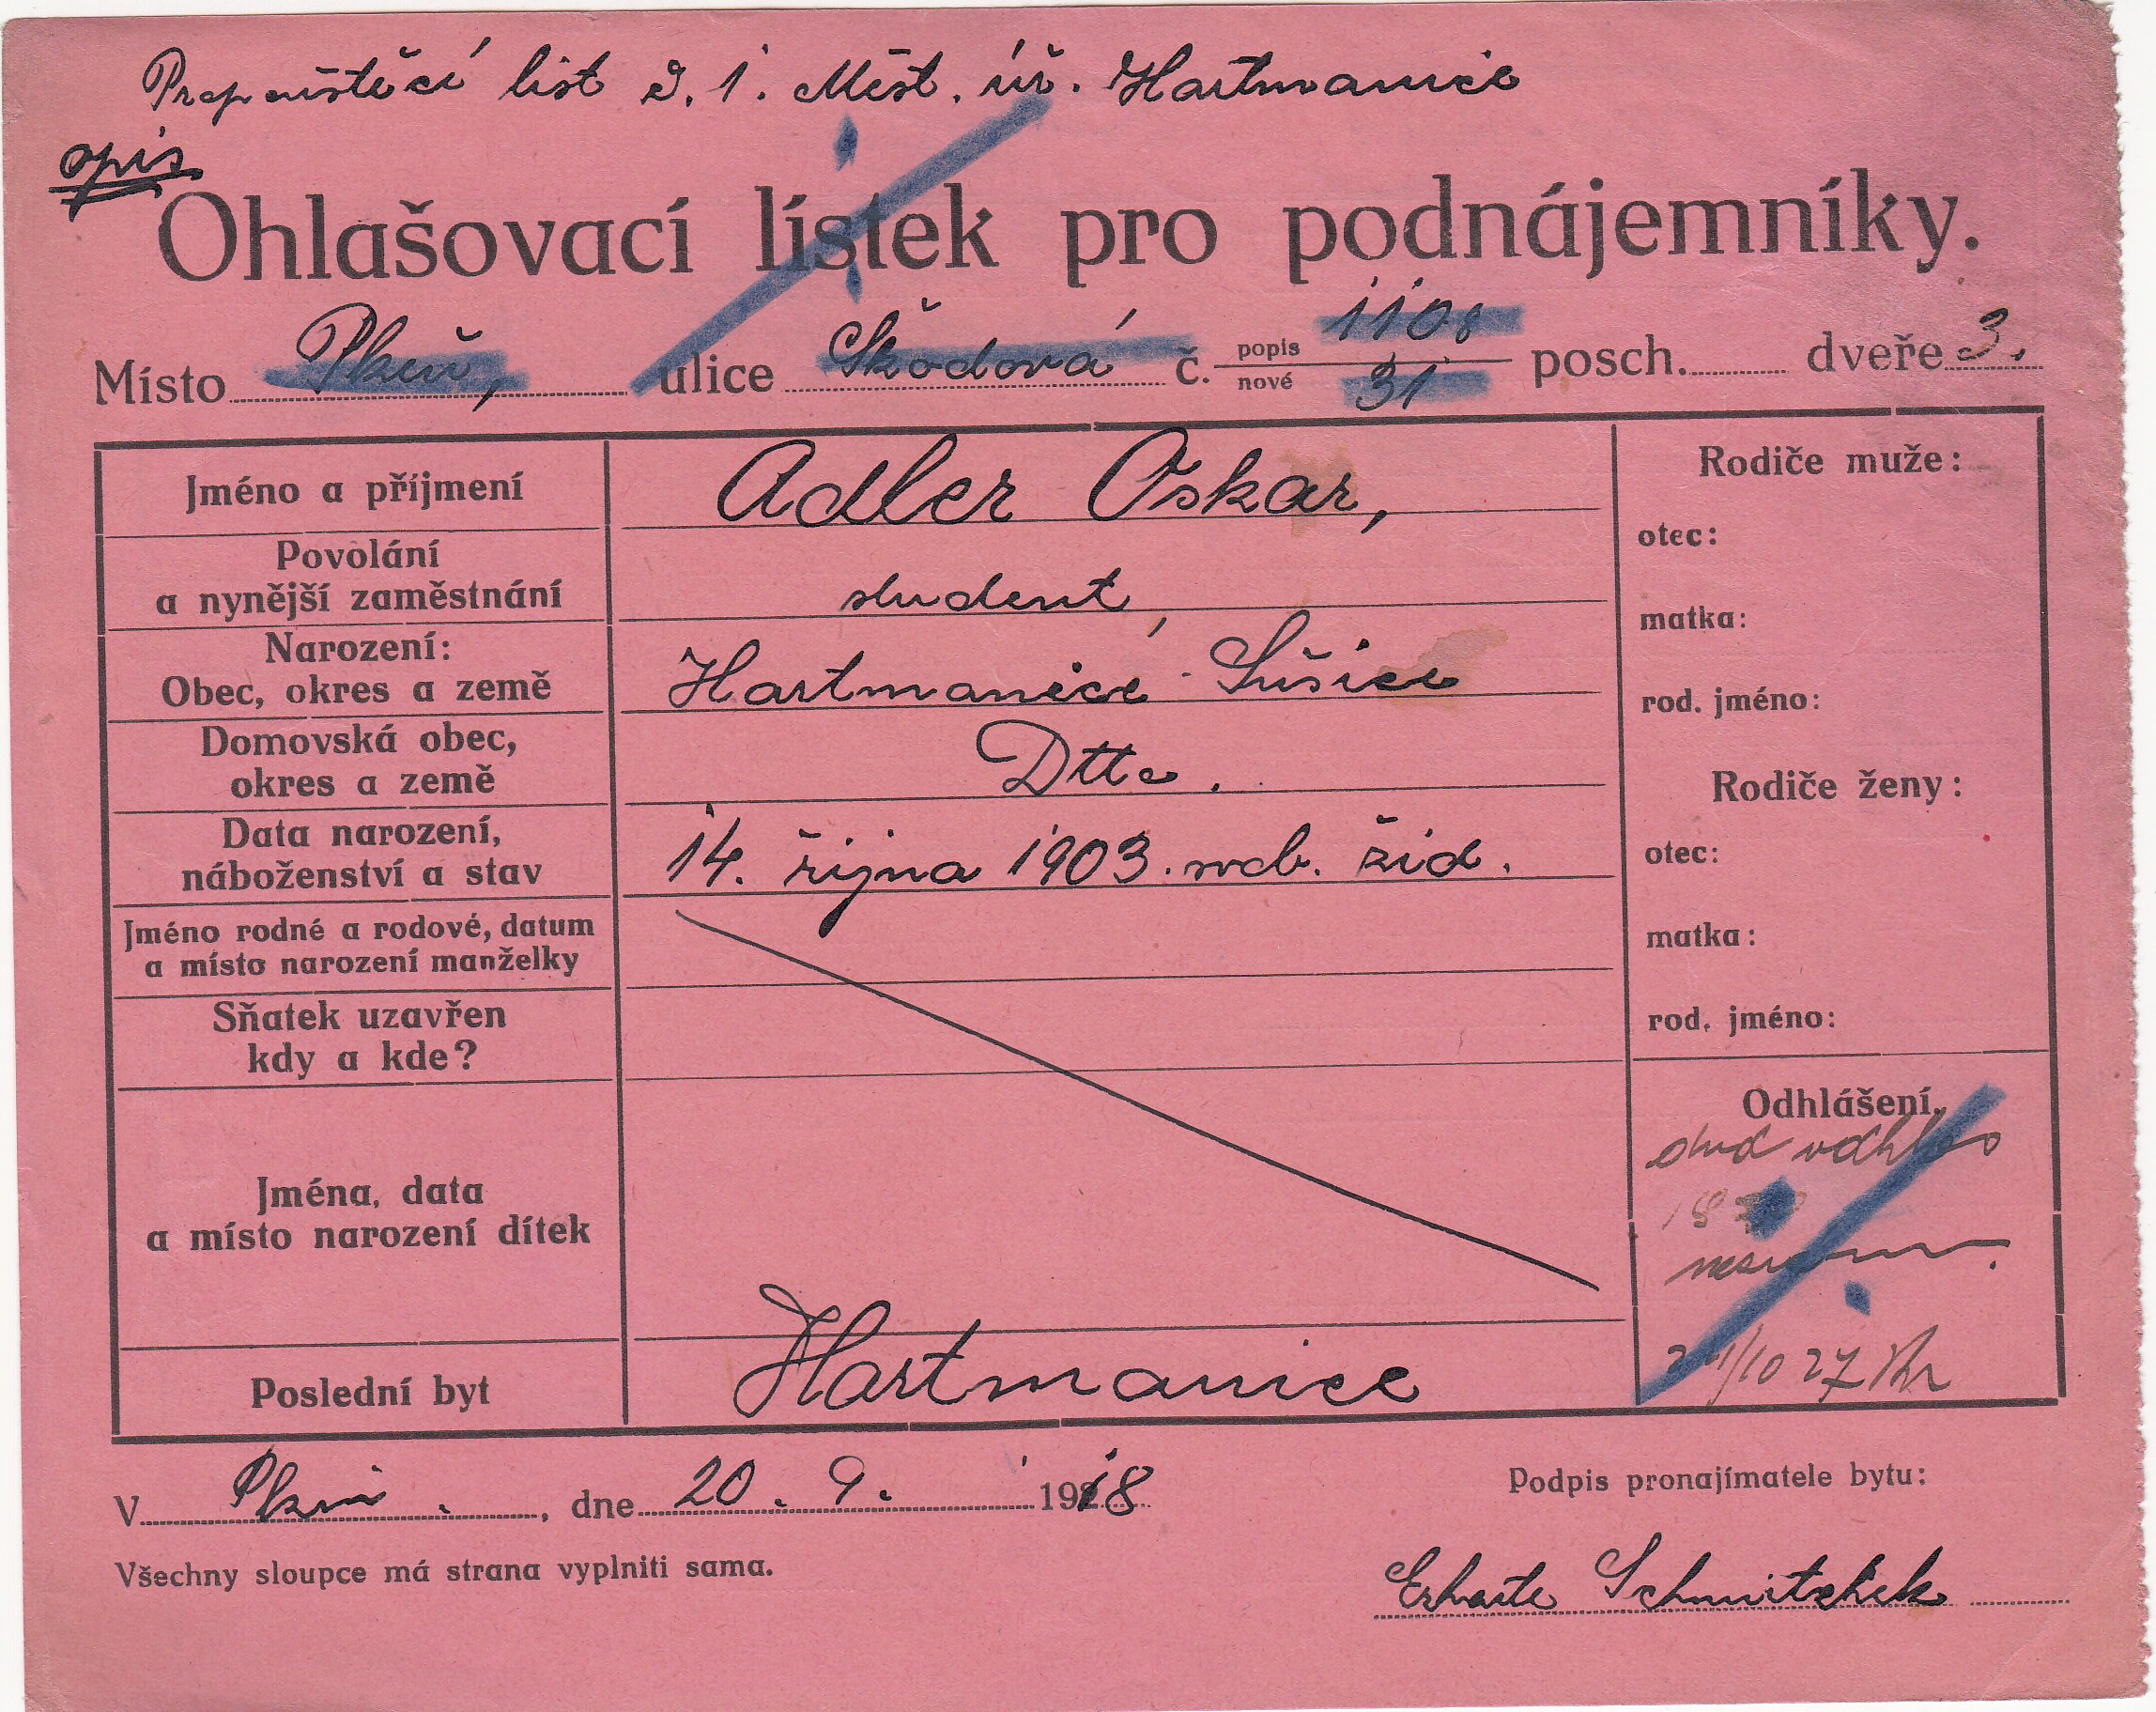 Propouštěcí list d. 1. Měst. úř. Hartmanice
opis
Ohlašovací lístek pro podnájemníky.
Místo Plzeň, ulice Škodová č. popis 1108 nové 31 posch. dveře 3.
Jméno a příjmení Adler Oskar,
Povolání
a nynější zaměstnání student,
Narození:
Obec, okres a země Hartmanice - Sušice
Domovská obec,
okres a země Dtto.
Data narození,
náboženství a stav 14. října 1903. svob. žid.
Jméno rodné a rodové, datum
a místo narození manželky
Sňatek uzavřen
kdy a kde?
Jména, data
a místo narození dítek
Poslední byt Hartmanice
Rodiče muže:
otec:
matka:
rod. jméno:
Rodiče ženy:
otec:
matka:
rod. jméno:
Odhlášení.
/10 27
V Plzni, dne 20. 9. 1918
Podpis pronajímatele bytu:
Všechny sloupce má strana vyplniti sama.